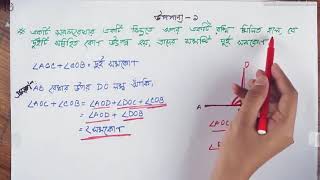 উপপাদ্য - ১
* একটি সরলরেখার একটি বিন্দুতে অপর একটি রশ্মি মিলিত হলে, যে
দুইটি সন্নিহিত কোণ উৎপন্ন হয়, তাদের সমষ্টি দুই সমকোণ
∠AOC + ∠COB = দুই সমকোণ
AB রেখার উপর DO লম্ব আঁকি।
∠AOC + ∠COB = ∠AOD + ∠DOC + ∠COB
= ∠AOD + ∠DOB
= ২ সমকোণ
D
A